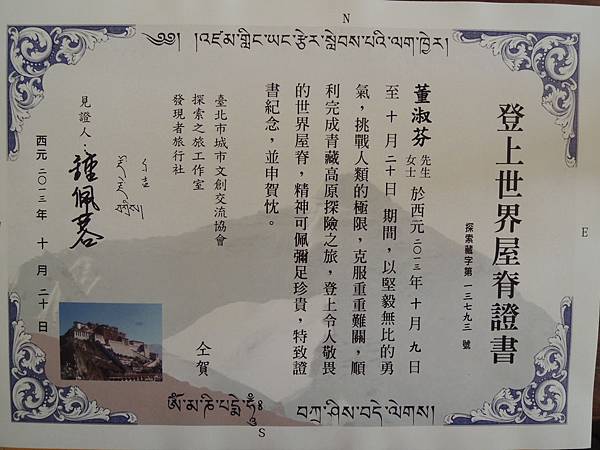 N
༄༅། །འཛམ་གླིང་ཡང་རྩེར་སླེབས་པའི་ལག་ཁྱེར།
登上世界屋脊證書
探索藏字第 一三七九三 號
董淑芬 先生 女士 於西元 二〇一三 年 十 月 九 日
至 十 月 二十 日 期間，以堅毅無比的勇
氣，挑戰人類的極限，克服重重難關，順
利完成青藏高原探險之旅，登上令人敬畏
的世界屋脊，精神可佩彌足珍貴，特致證
書紀念，並申賀忱。
臺北市城市文創交流協會
探索之旅工作室
發現者旅行社
仝賀
見證人
鍾佩蓉
西元 二〇一三 年 十 月 二十 日
E
ཨོཾ་མ་ཎི་པདྨེ་ཧཱུྃ༔
བཀྲ་ཤིས་བདེ་ལེགས།
S